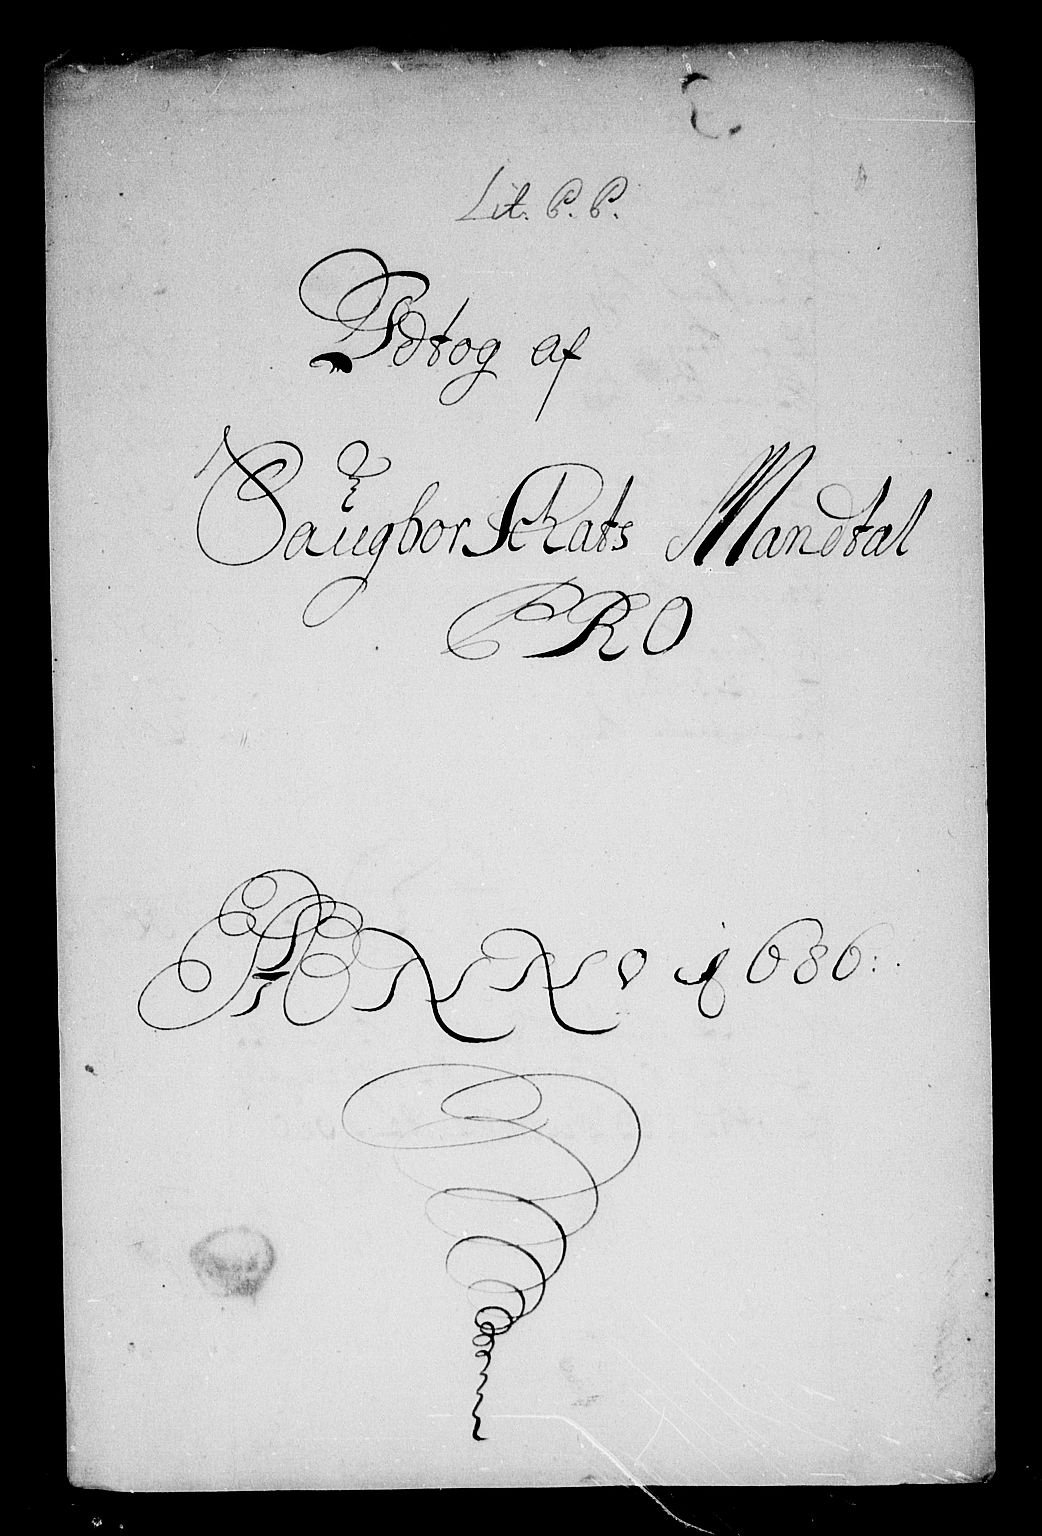 Lit. P. P.
Vdtog af
Saugbor Schats Mandtal
PRO
ANNO 1686: